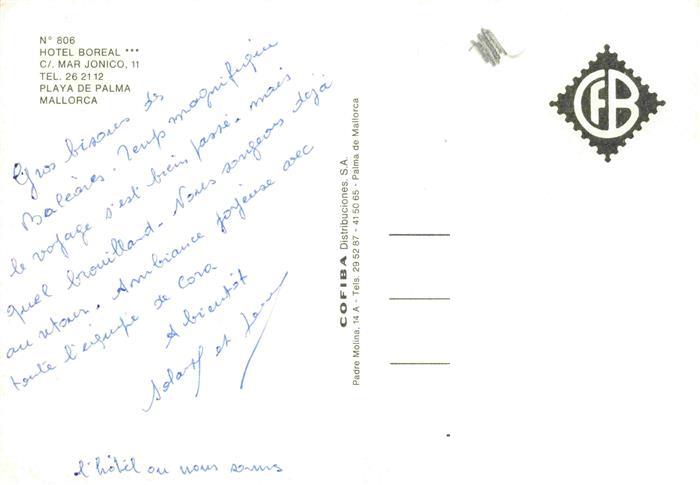 N° 806
HOTEL BOREAL ***
C/. MAR JONICO, 11
TEL. 26 21 12
PLAYA DE PALMA
MALLORCA
Gros bisous des
Baléares. Temps magnifique
le voyage s'est bien passé. mais
quel brouillard. Nous songeons déjà
au retour. Ambiance joyeuse avec
toute l'équipe de Cora
A bientôt
et
l'hôtel ou nous sommes
COFIBA Distribuciones, S.A.
Padre Molina, 14 A - Tels. 29 52 87 - 41 50 65 - Palma de Mallorca
CFB